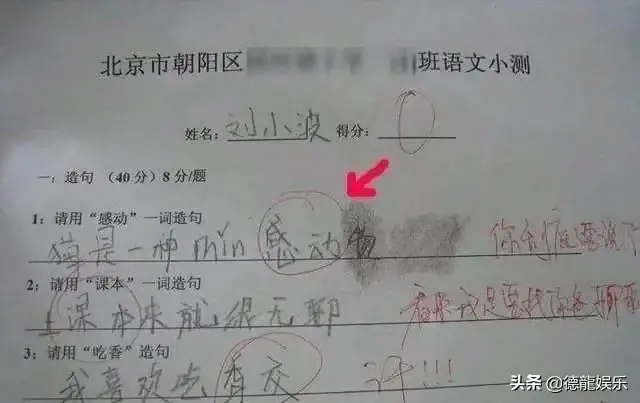 北京市朝阳区 班语文小测
姓名: 刘小波 得分: 0
一: 造句 (40分) 8分/题
1: 请用“感动”一词造句
猫是一种min感动物
2: 请用“课本”一词造句
上课本来就很无聊
看来我是要找你爸聊聊
3: 请用“吃香”造句
我喜欢吃香交 汗!!!
头条 @德龍娱乐